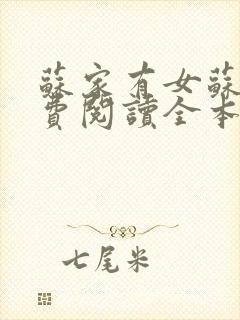 蘇家有女蘇
費閱讀全本
七尾米